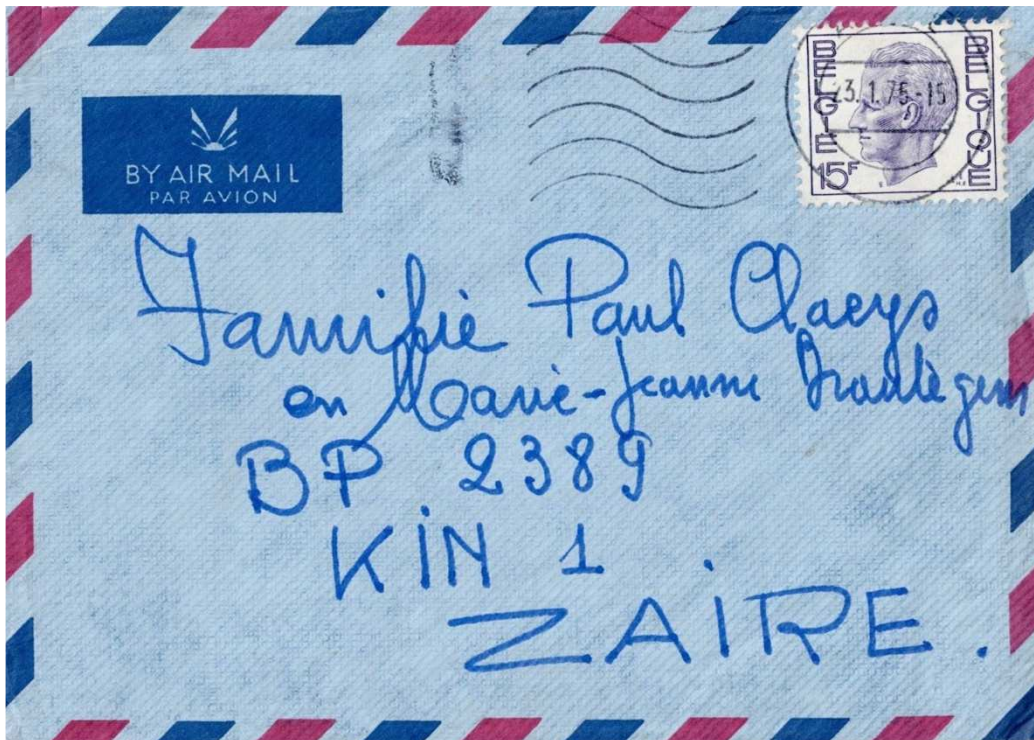 BY AIR MAIL
PAR AVION
BELGIE BELGIQUE
23.1.75-15
15F
Familie Paul Claeys
en Marie-Jeanne
BP 2389
KIN 1
ZAIRE.